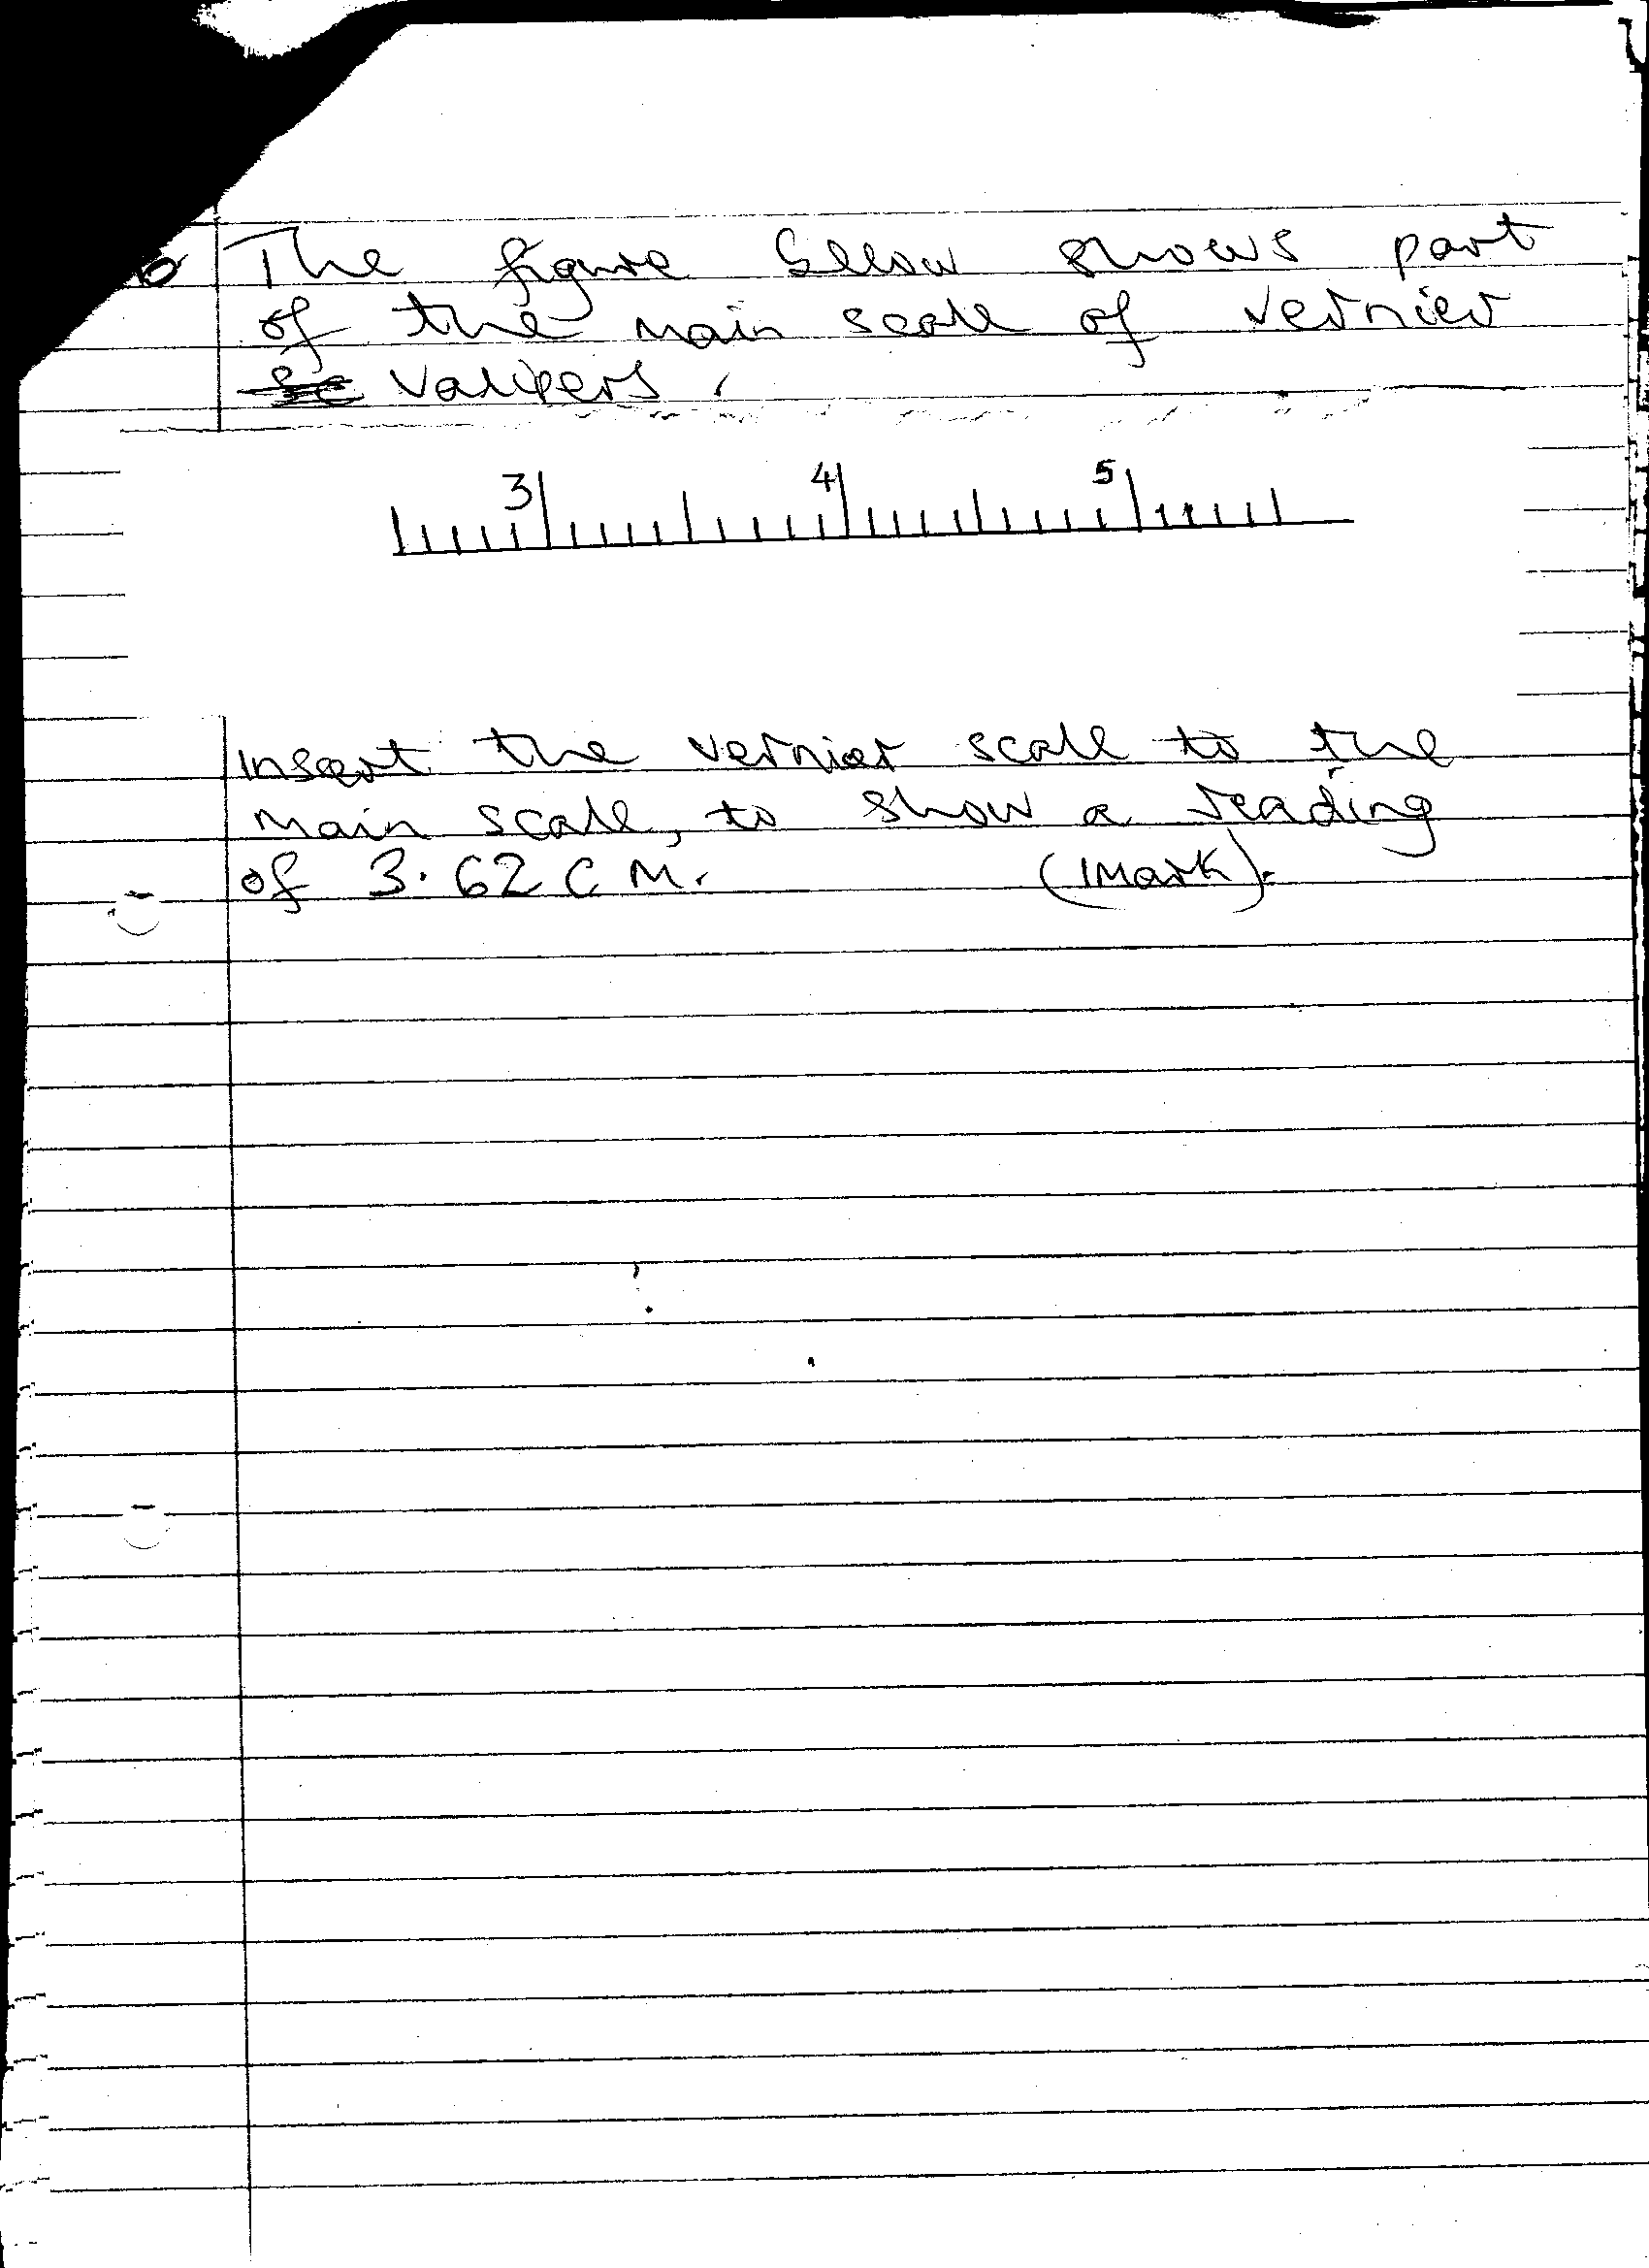 The figure bellow shows part
of the main scale of vernier
valipers.
3 4 5
Insert the vernier scale to the
main scale, to show a reading
of 3.62 CM. (1Mark).